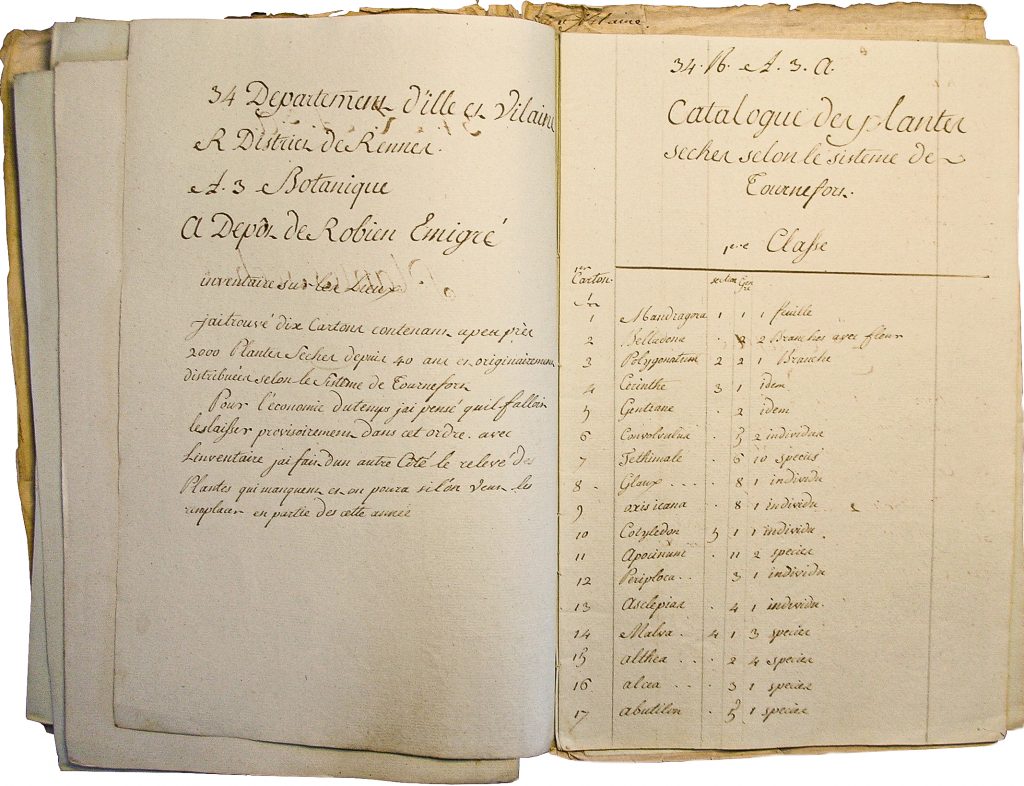 34 Departement d'ille et Vilaine
R District de Rennes.
et. 3 Botanique
A Depôt de Robien Emigré
inventaire sur les Lieux
jai trouvé dix Cartons contenant a peu près
2000 Plantes Seches depuis 40 ans et originairement
distribuées selon le Sisteme de Tournefort
Pour l'économie du temps jai pensé quil fallait
les laisser provisoirement dans cet ordre. avec
Linventaire jai fait dun autre Côté le relevé des
Plantes qui manquent et on poura si lon veut les
remplacer en partie des cette année
Vilaine.
34. et. 3. A.
Catalogue des plantes
seches selon le sisteme de
Tournefort.
1ere Classe
1er Carton. section Genre
1 Mandragora 1 1 1 feuille
2 Belladona . 2 Branches avec fleur
3 Polygonatum 2 2 1 Branche
4 Cerinthe 3 1 idem
5 Gentiane . 2 idem
6 Convolvulus . 5 2 individus
7 Tethimale . 6 10 species
8 . Glaux . . . . . 8 1 individu
9 . 8 1 individu
10 Cotyledon 5 1 1 individu.
11 Apocinum . 11 2 species
12 Periploca . . 3 1 individu
13 Asclepias . 4 1 individu.
14 Malva . 4 1 3 species
15 althea . . . 2 4 species
16 alcea . . . 3 1 species
17 abutilon . 5 1 species